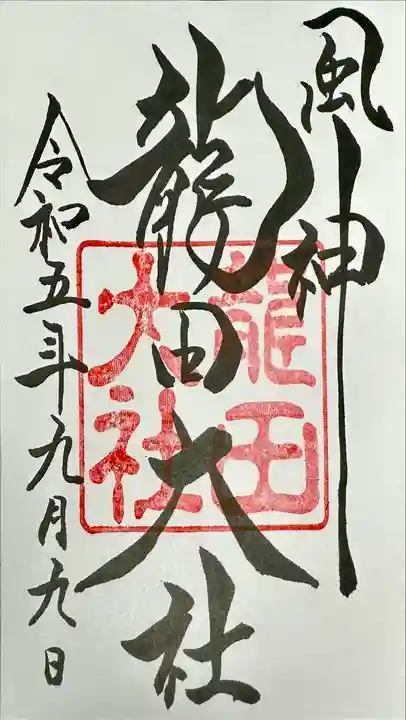 風神
龍田大社
龍田
大社
令和五年九月九日